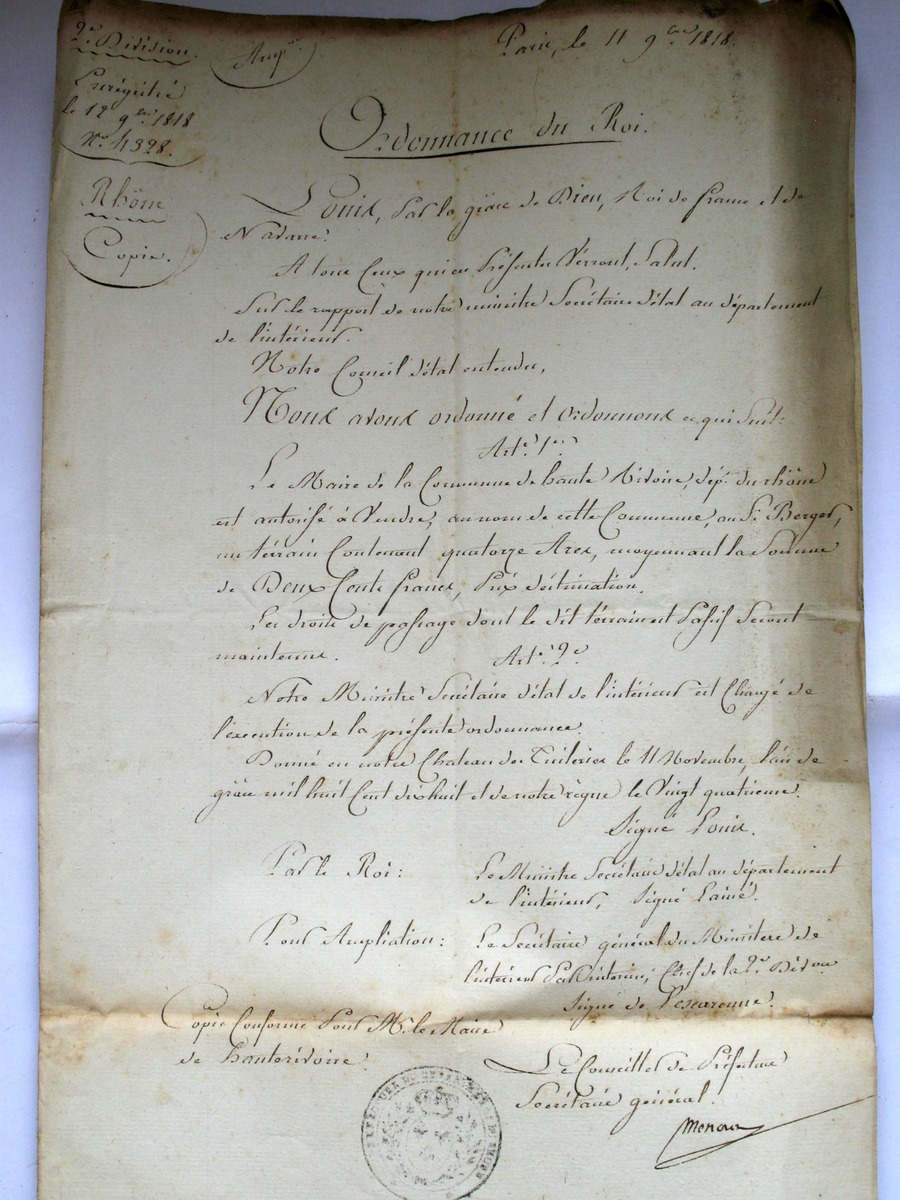 2e Division.
Amp.on
Paris, le 11 9bre 1818.
Enrégistré
le 12 9bre 1818
No. 4328.
Ordonnance du Roi.
Rhône
Copie.
Louis, par la grâce de Dieu, Roi de france et de
Navarre.
A tous Ceux qui ces Présentes Verront, Salut.
Sur le rapport de notre ministre Secrétaire d'état au département
de l'intérieur.
Notre Conseil d'état entendu,
Nous avons ordonné et Ordonnons ce qui Suit:
Art.e 1er
Le Maire de la Commune de haute Rivoire, dépt. du rhône
est autorisé à Vendre, au nom de cette Commune, au Sr. Berger,
un terrain Contenant quatorze Ares, moyennant la Somme
de Deux Cents francs, Prix d'estimation.
Les droits de passage dont le dit terrain est Passif Seront
maintenus.
Art.e 2e
Notre Ministre Secrétaire d'état de l'intérieur est Chargé de
l'exécution de la présente ordonnance.
Donné en notre Chateau des Tuileries le 11 Novembre, l'an de
grâce mil huit Cent dix huit et de notre règne le Vingt quatrième.
Signé Louis.
Par le Roi:
Le Ministre Secrétaire d'état au département
de l'intérieur, Signé Lainé.
Pour Ampliation:
Le Secrétaire général du Ministere de
l'intérieur Par Intérim, Chef de la 2e Divon
Signé de
Copie Conforme Pour Mr. le Maire
de hauterivoire.
Le Conseiller de Préfecture
Secrétaire général.